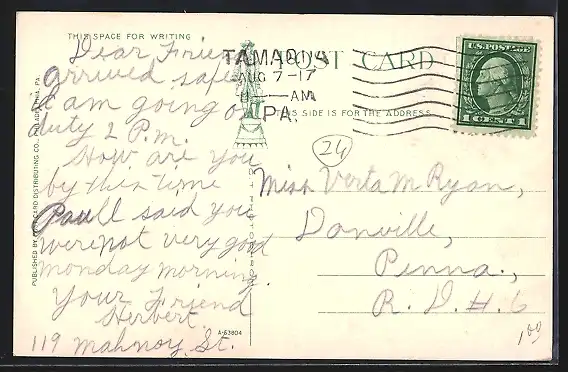 THIS SPACE FOR WRITING
Dear Friend
arrived safe
I am going on
duty 2 P.m.
How are you
by this time
Paull said you
were not very good
monday morning.
Your Friend
Herbert
119 Mahnoy St.
POST CARD
THIS SIDE IS FOR THE ADDRESS
TAMAQUA
AUG 7-17
8 — AM
PA.
U.S. POSTAGE
1 CENT 1
24
Miss Verta M Ryan,
Danville,
Penna.,
R. D. #. 6
100
A-63804